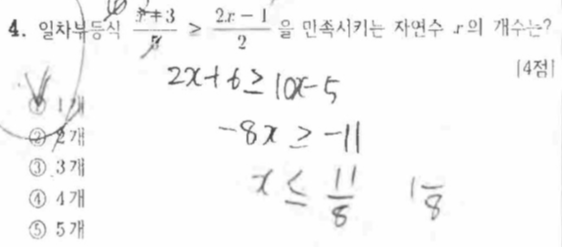 4. 일차부등식 \frac{x+3}{5} ≥ \frac{2x-1}{2} 을 만족시키는 자연수 x의 개수는?
[4점]
2x+6≥10x-5
① 1개
-8x ≥ -11
② 2개
③ 3개
x ≤ \frac{11}{8}
④ 4개
⑤ 5개